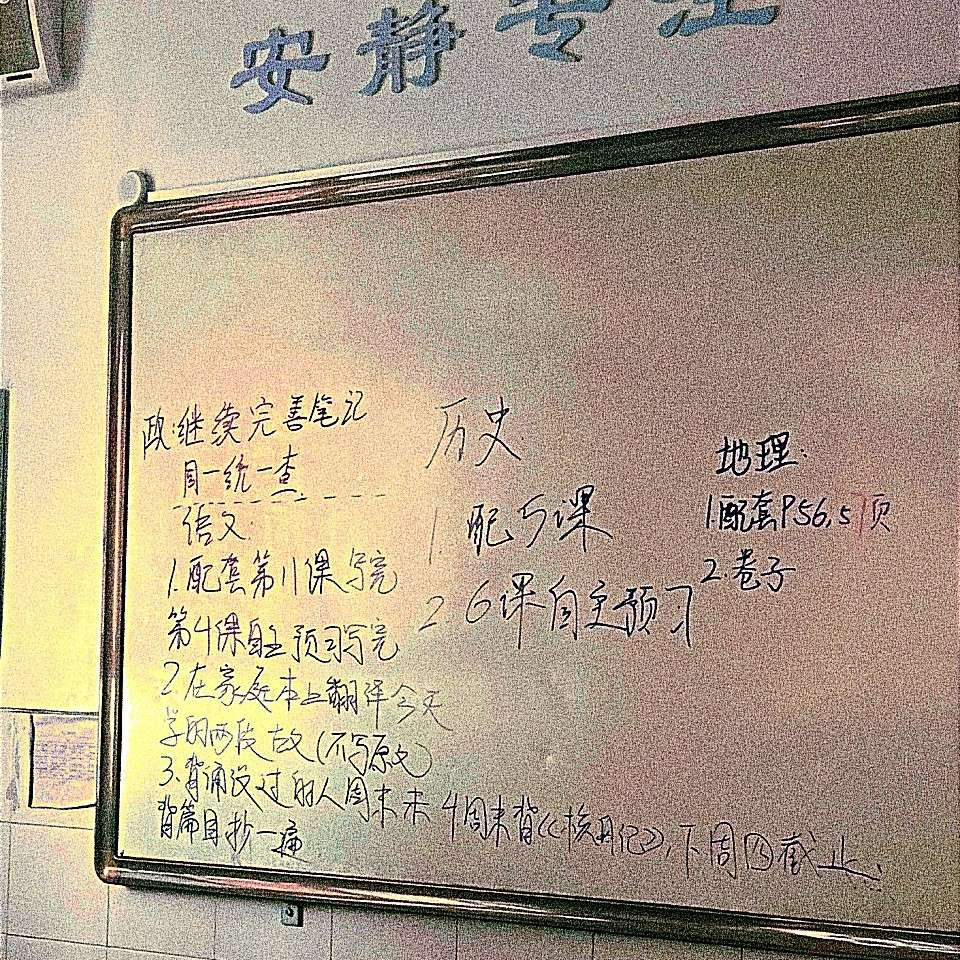 安静专注
政:继续完善笔记
周一统一查
语文:
1.配套第11课写完
第4课自主预习写完
2.在家庭本上翻译今天
学的两段古文(不写原文)
3.背诵没过的人周末未
背篇目抄一遍
4周末背《核舟记》,下周四截止.
历史
1.配5课
2 6课自主预习
地理:
1.配套P56,51页
2.卷子